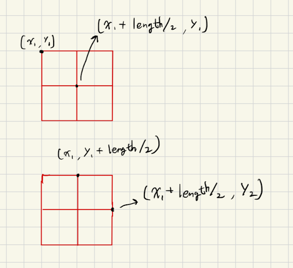 (x₁ + length/2 , Y₁)
(x₁, Y₁)
(x₁, Y₁ + length/2)
(x₁ + length/2 , Y₂)